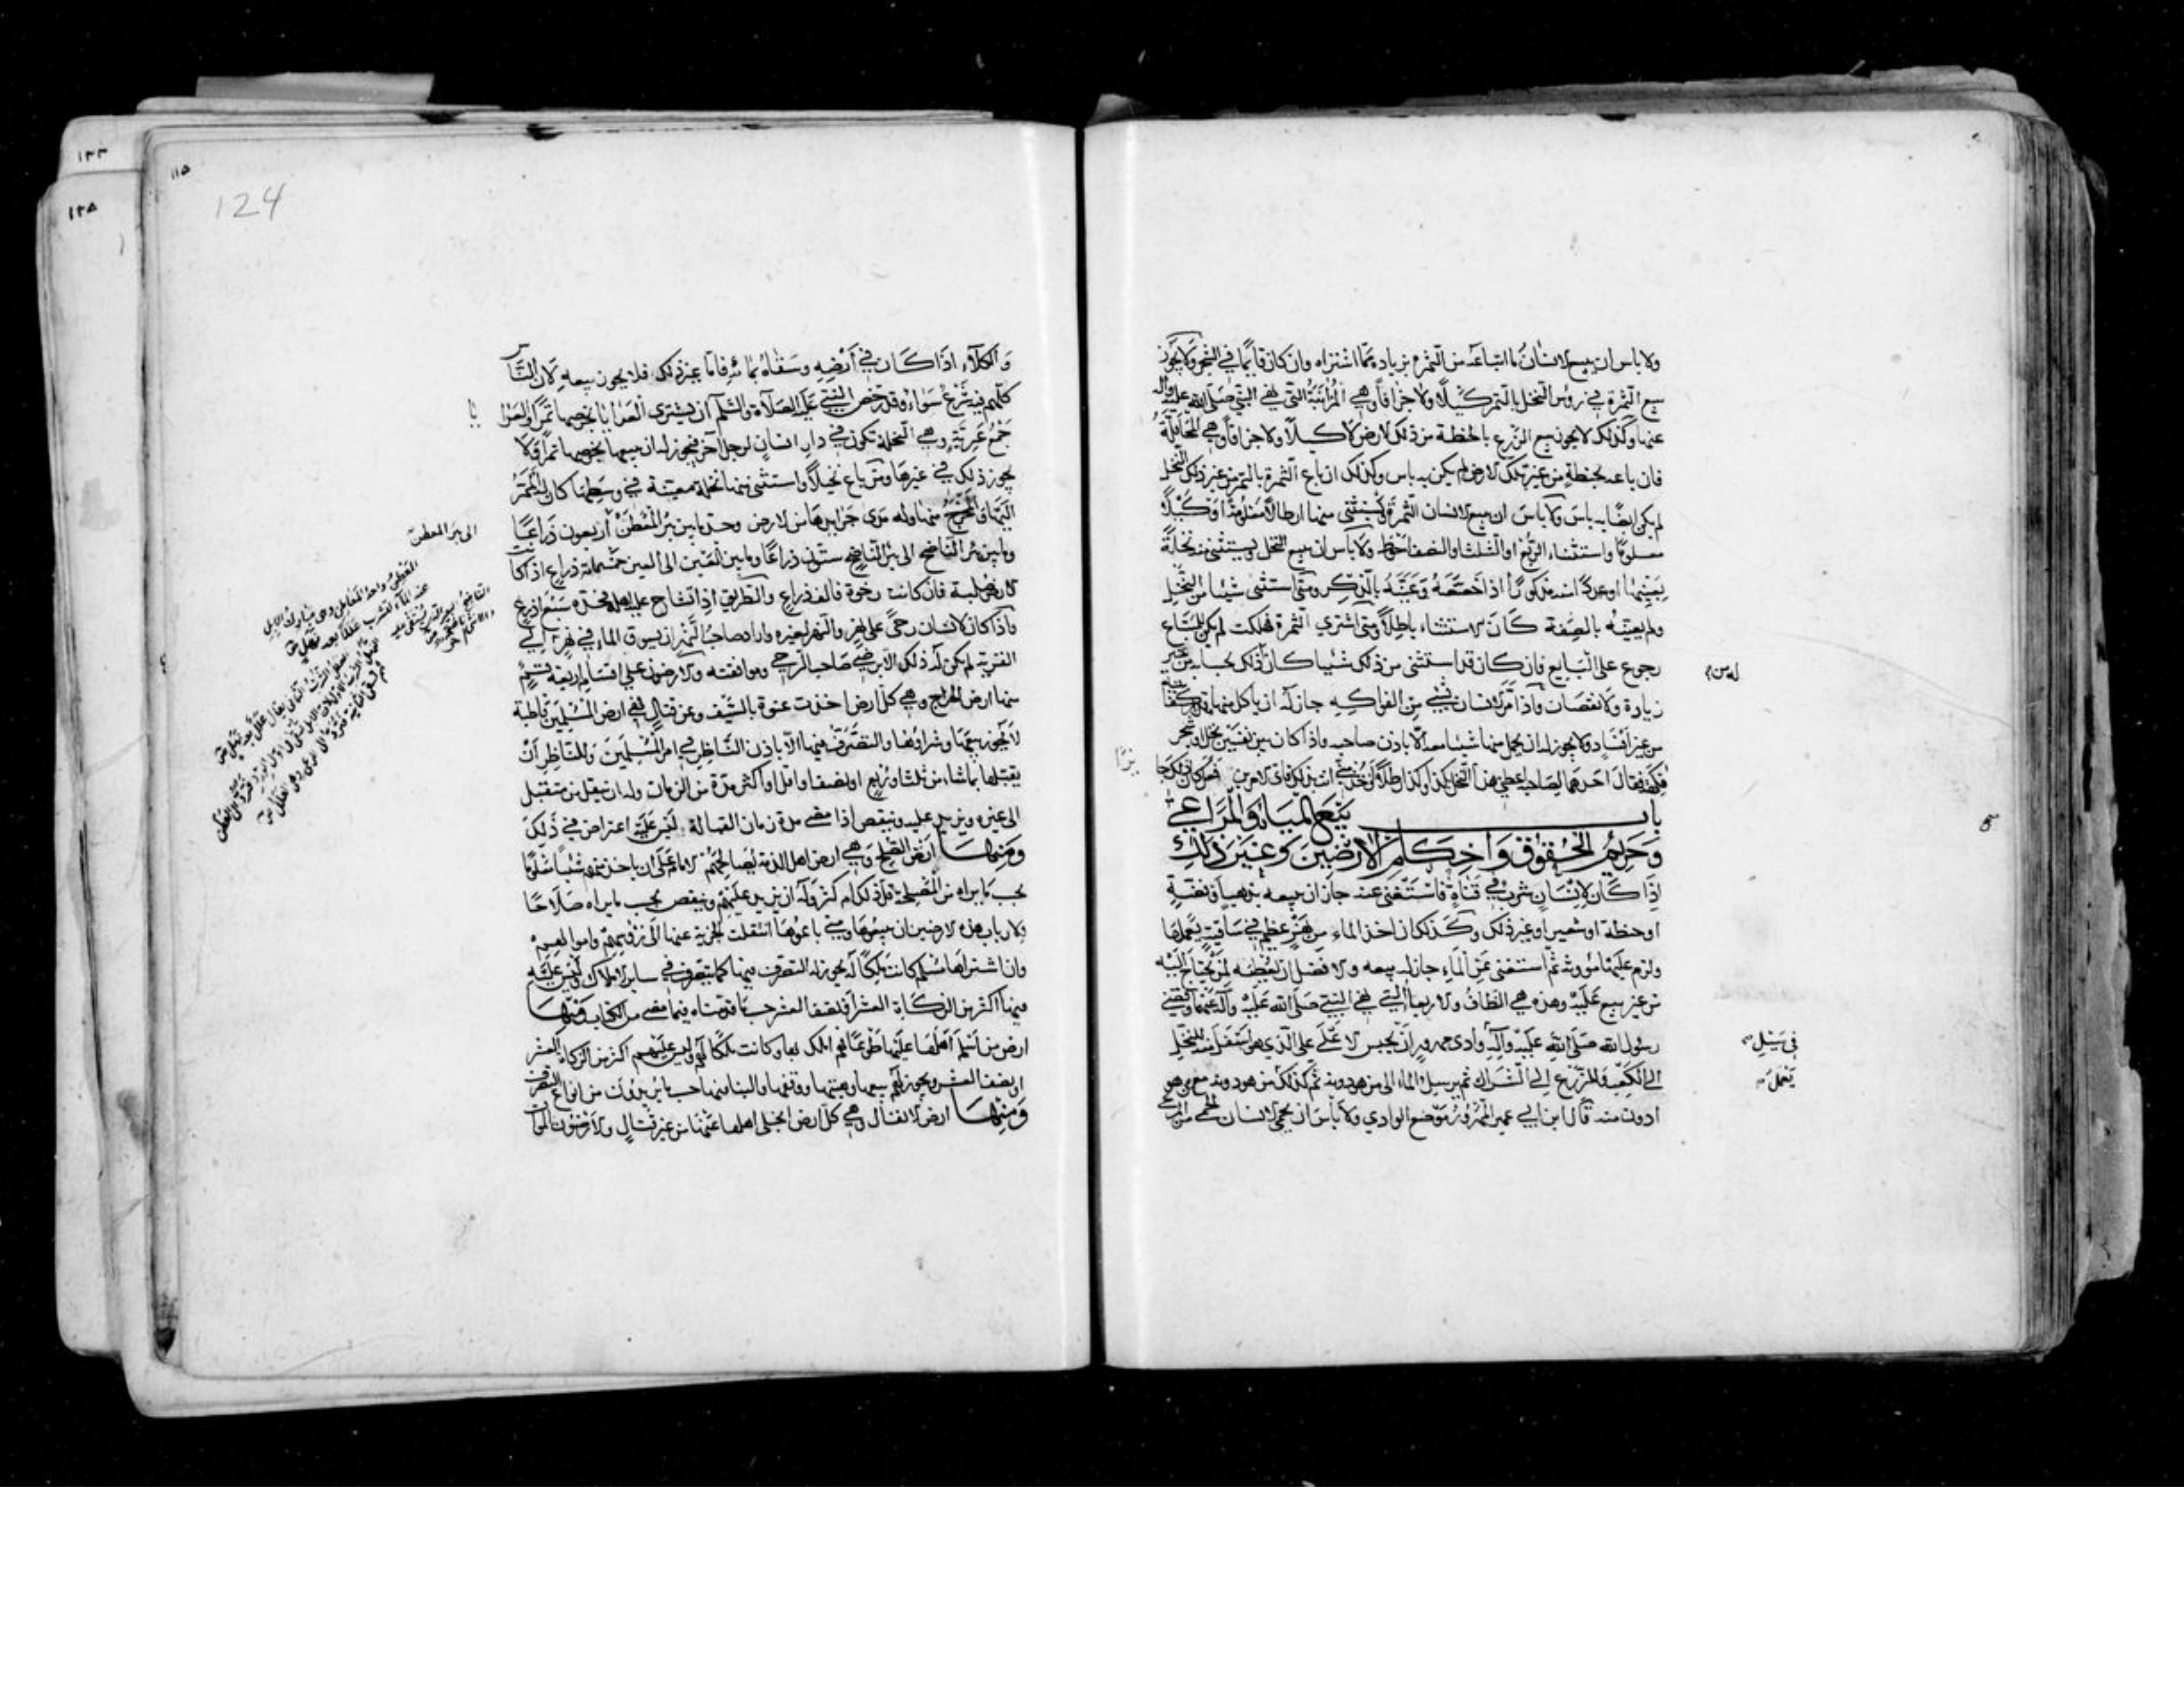 ولا باس ان يبيع الانسان ما ابتاعه من الثمرة بزيادة مما اشتراه وان كان قايما في الشجر ولا يجوز
بيع الثمرة في رؤس النخل بالتمر كيلا ولا جزافا وهي المزابنة التي نهى النبي صلى الله عليه واله
عنها وكذلك لا يجوز بيع الزرع بالحنطة من ذلك الارض لا كيلا ولا جزافا وهي المحاقلة
فان باعه بحنطة من غير تلك الارض لم يكن به باس وكذلك ان باع الثمرة بالتمر من غير ذلك النخل
لم يكن ايضا به باس ولا باس ان يبيع الانسان الثمرة ويستثنى منها ارطالا معلومة او كيلا
معلوما واستثناء الربع او الثلث او النصف احوط ولا باس ان يبيع النخل ويستثنى منه نخلة
بعينها او عددا منه مذكورا اذا خصصه وعينه بالذكر ومتى استثنى شيئا من النخل
ولم يعينه بالصفة كان الاستثناء باطلا ومتى اشترى الثمرة فهلكت لم يكن للمبتاع
رجوع على البايع فان كان قد استثنى من ذلك شيئا كان ذلك بحسابه من غير
له من
زيادة ولا نقصان واذا مر الانسان بشئ من الفواكه جاز له ان ياكل منها قدر كفايته
من غير افساد ولا يجوز له ان يحمل منها شيئا معه الا باذن صاحبه واذا كان بين نفسين نخل او شجر
فاكهة فقال احدهما لصاحبه اعطني هذا النخل بكذا وكذا رطلا او خذ مني انت بذلك فاي الامرين فعل كان ذلك جايزا
باب بيع المياه والمراعي
وحريم الحقوق واحكام الارضين وغير ذلك
اذا كان لانسان شرب في قناة فاستغنى عنه جاز ان يبيعه بذهب او فضة
او حنطة او شعير او غير ذلك وكذلك ان اخذ الماء من نهر عظيم في ساقية يعملها
ولزم عليها مؤونة ثم استغنى عن الماء جاز له بيعه والافضل ان يعطيه لمن يحتاج اليه
من غير بيع عليه وهذه هي النطاف والاربعاء التي نهى النبي صلى الله عليه وآله عنها وقضى
رسول الله صلى الله عليه وآله وادي مهزور ان يحبس الاعلى على الذي هو اسفل منه للنخل
في سيل
الى الكعب وللزرع الى الشراك ثم يرسل الماء الى من هو دونه ثم كذلك من هو دونه مع من هو
يعمل
ادون منه قال ابن ابي عمير المهزور موضع الوادي ولا باس ان يحمي الانسان الحمى من المرعى
١٢٣
١٢٥
١١٥
124
والكلاء اذا كان في ارضه وسقاه بماءه فاما غير ذلك فلا يجوز بيعه لان الناس
كلهم فيه شرع سواء وقد رخص النبي عليه الصلاة والسلم ان يشترى العرايا بخرصها تمرا والعرايا
جمع عرية وهي النخلة تكون في دار انسان لرجل آخر فيجوز له ان يبيعها بخرصها تمرا ولا
يجوز ذلك في غيرها ومتى باع نخيلا واستثنى منها نخلة معينة في وسطها كان له الممر
اليها والمخرج منها وله مدى جرايدها من الارض وحد ما بين بئر المعطن اربعون ذراعا
الى بئر المعطن
وما بين بئر الناضح الى بئر الناضح ستون ذراعا وما بين العين الى العين خمسمائة ذراع اذا كانت
الارض صلبة فان كانت رخوة فالف ذراع والطريق اذا تشاح عليه اهله فحده سبع اذرع
واذا كان لانسان رحى على نهر والنهر لغيره واراد صاحب النهر ان يسوق الماء في نهر آخر الى
القرية لم يكن له ذلك الا برضى صاحب الرحى وموافقته والارضون على اقسام اربعة قسم
منها ارض الخراج وهي كل ارض اخذت عنوة بالسيف وعن قتال فهي ارض المسلمين قاطبة
لا يجوز بيعها وشراؤها والتصرف فيها الا باذن الناظر في امر المسلمين وللناظر ان
يقبلها بما شاء من ثلث او ربع او نصف او اقل او اكثر مدة من الزمان وله ان ينقل من متقبل
الى غيره ويزيد عليه وينقص اذا مضى مدة زمان القبالة ليس عليه اعتراض في ذلك
ومنها ارض الصلح وهي ارض اهل الذمة يصالحهم الامام على ان ياخذ منهم شيئا معلوما
بحسب ما يراه من المصلحة قل ذلك ام كثر وله ان يزيد عليهم وينقص بحسب ما يراه صلاحا
ولارباب هذه الارضين ان يبيعوها ومتى باعوها انتقلت الجزية عنها الى رؤسهم واموالهم
وان اشتراها مسلم كانت ملكا له يجوز له التصرف فيها كما يتصرف في ساير الاملاك وليس عليه
فيها اكثر من الزكاة العشر او نصف العشر حسب ما قدمناه فيما مضى من الكتاب ومنها
ارض من اسلم اهلها عليها طوعا فهم املك بها وكانت ملكا لهم وليس عليهم اكثر من الزكاة العشر
او نصف العشر ويجوز لهم بيعها وهبتها ووقفها والبناء فيها حسب ما يريدون من انواع التصرف
ومنها ارض الانفال وهي كل ارض انجلى اهلها عنها من غير قتال والارضون الموات